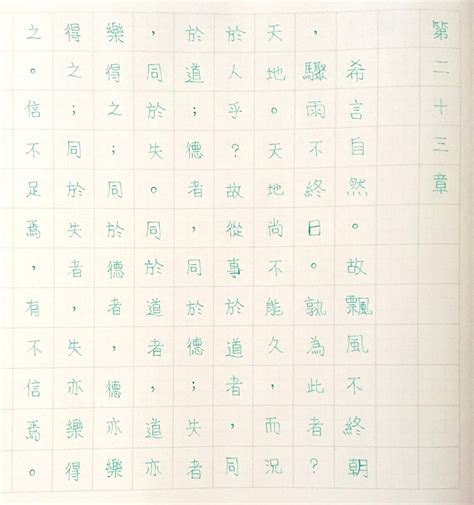 第二十三章
希言自然。故飄風不終朝
，驟雨不終日。孰為此者？
天地。天地尚不能久，而況
於人乎？故從事於道者，同
於道；德者，同於德；失者
，同於失。同於道者，道亦
樂得之；同於德者，德亦樂
得之；同於失者，失亦樂得
之。信不足焉，有不信焉。